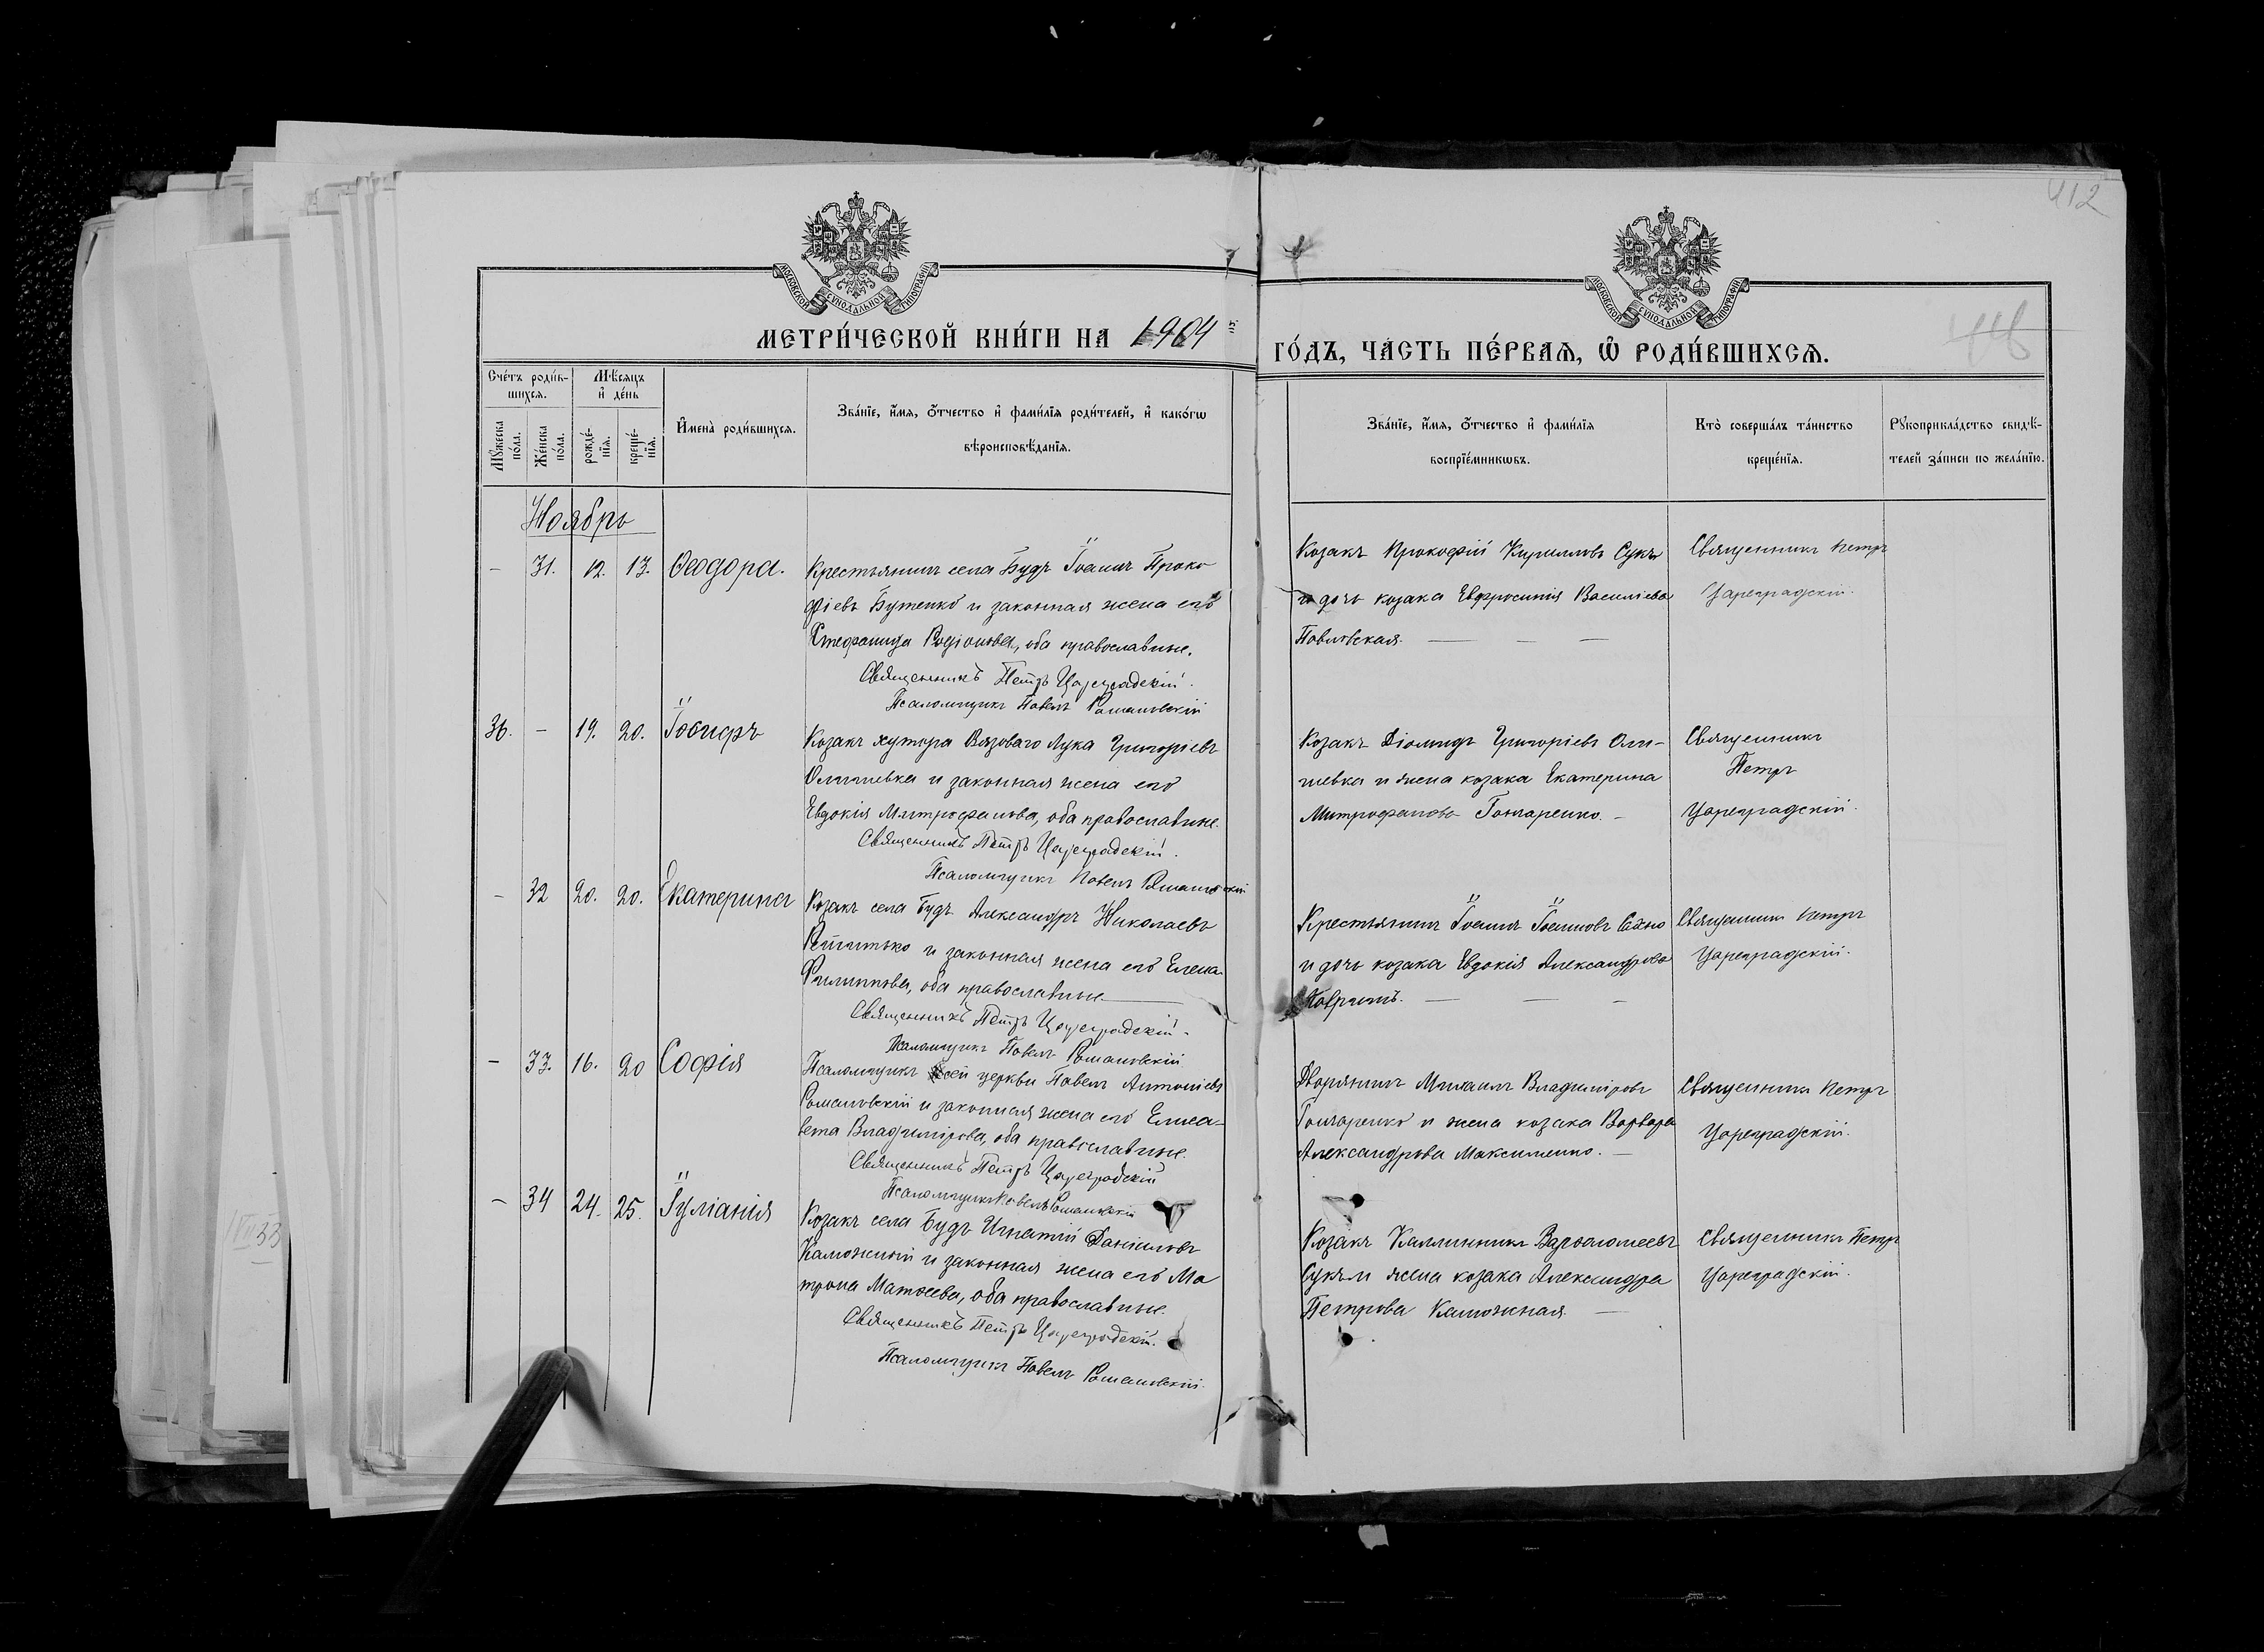 412
МОСКОВСКОЙ СѴНОДАЛЬНОЙ ТИПОГРАФІИ
МОСКОВСКОЙ СѴНОДАЛЬНОЙ ТИПОГРАФІИ
МЕТРИ́ЧЕСКОЙ КНИ́ГИ НА 1904 й
ГО́ДЪ, ЧА́СТЬ ПЕ́РВАѦ, Ѽ РОДИ́ВШИХСѦ.
Сче́тъ роди́в-
шихсѧ.
Мѣ́сѧцъ
и҆ де́нь
Мꙋ́жеска
по́ла.
Же́нска
по́ла.
рожде́-
нїѧ.
креще́-
нїѧ.
И҆мена̀ роди́вшихсѧ.
Зва́нїе, и҆́мѧ, ѻ҆́тчество и҆ фами́лїѧ роди́телей, и҆ како́гѡ
вѣроисповѣ́данїѧ.
Зва́нїе, и҆́мѧ, ѻ҆́тчество и҆ фами́лїѧ
воспрїе́мникѡвъ.
Кто̀ соверша́лъ та́инство
креще́нїѧ.
Рꙋкоприкла́дство свидѣ́-
телей за́писи по жела́нїю.
Ноябрь
– 31. 12. 13. Ѳеодора.
Крестьянинъ села Будъ Іоаннъ Проко
фіевъ Бутенко и законная жена его
Стефанида Родіонова, оба православные.
Священникъ Петръ Цареградскій.
Псаломщикъ Павелъ Романовскій
Козакъ Прокофій Кирилловъ Сукъ
и дочь козака Евфросинія Василіева
Павловская.
Священникъ Петръ
Цареградскій.
36. – 19. 20. Іосифъ
Козакъ хутора Вязоваго Лука Григоріевъ
Олишевка и законная жена его
Евдокія Митрофанова, оба православные.
Священникъ Петръ Цареградскій.
Псаломщикъ Павелъ Романовскій
Козакъ Діомидъ Григоріевъ Оли-
шевка и жена козака Екатерина
Митрофанова Гончаренко. –
Священникъ
Петръ
Цареградскій.
– 32 20. 20. Екатерина
Козакъ села Будъ Александръ Николаевъ
и законная жена его Елена
Филиппова, оба православные
Священникъ Петръ Цареградскій.
Псаломщикъ Павелъ Романовскій
Крестьянинъ Іоаннъ Іоанновъ Сахно
и дочь козака Евдокія Александрова
Священникъ Петръ
Цареградскій.
– 33. 16. 20 Софія
Псаломщикъ сей церкви Павелъ Антоніевъ
Романовскій и законная жена его Елиса-
вета Владимірова, оба православные.
Священникъ Петръ Цареградскій
Псаломщикъ Павелъ Романовскій
Дворянинъ Михаилъ Владиміровъ
Гончаренко и жена козака Варвара
Александрова Максименко. –
Священникъ Петръ
Цареградскій.
– 34 24. 25. Іуліанія
Козакъ села Будъ Игнатій Даніиловъ
Каможный и законная жена его Ма
трона Матѳеева, оба православные.
Священникъ Петръ Цареградскій.
Псаломщикъ Павелъ Романовскій.
Козакъ Каллинникъ Варѳоломеевъ
Сукъ и жена козака Александра
Петрова Каможная
Священникъ Петръ
Цареградскій.